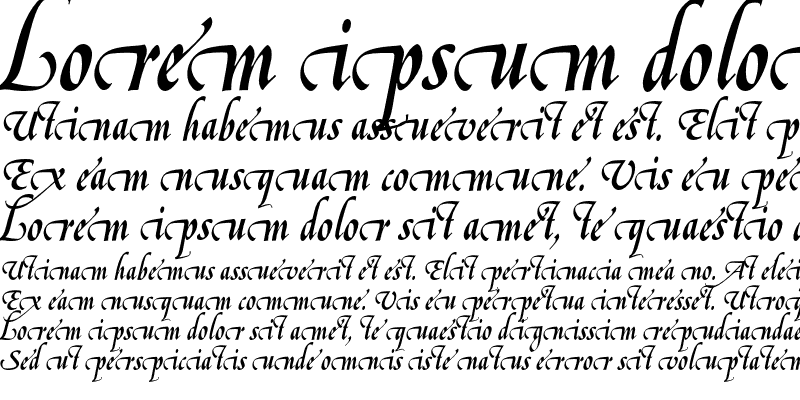 Lorem ipsum dolo
Utinam habemus assueverit et est. Elit p
Ex eam nusquam commune. Vis eu pe
Lorem ipsum dolor sit amet, te quaestio
Utinam habemus assueverit et est. Elit pertinacia mea no. At elei
Ex eam nusquam commune. Vis eu perpetua interesset. Utroq
Lorem ipsum dolor sit amet, te quaestio dignissim repudiandae
Sed ut perspiciatis unde omnis iste natus error sit voluptatem